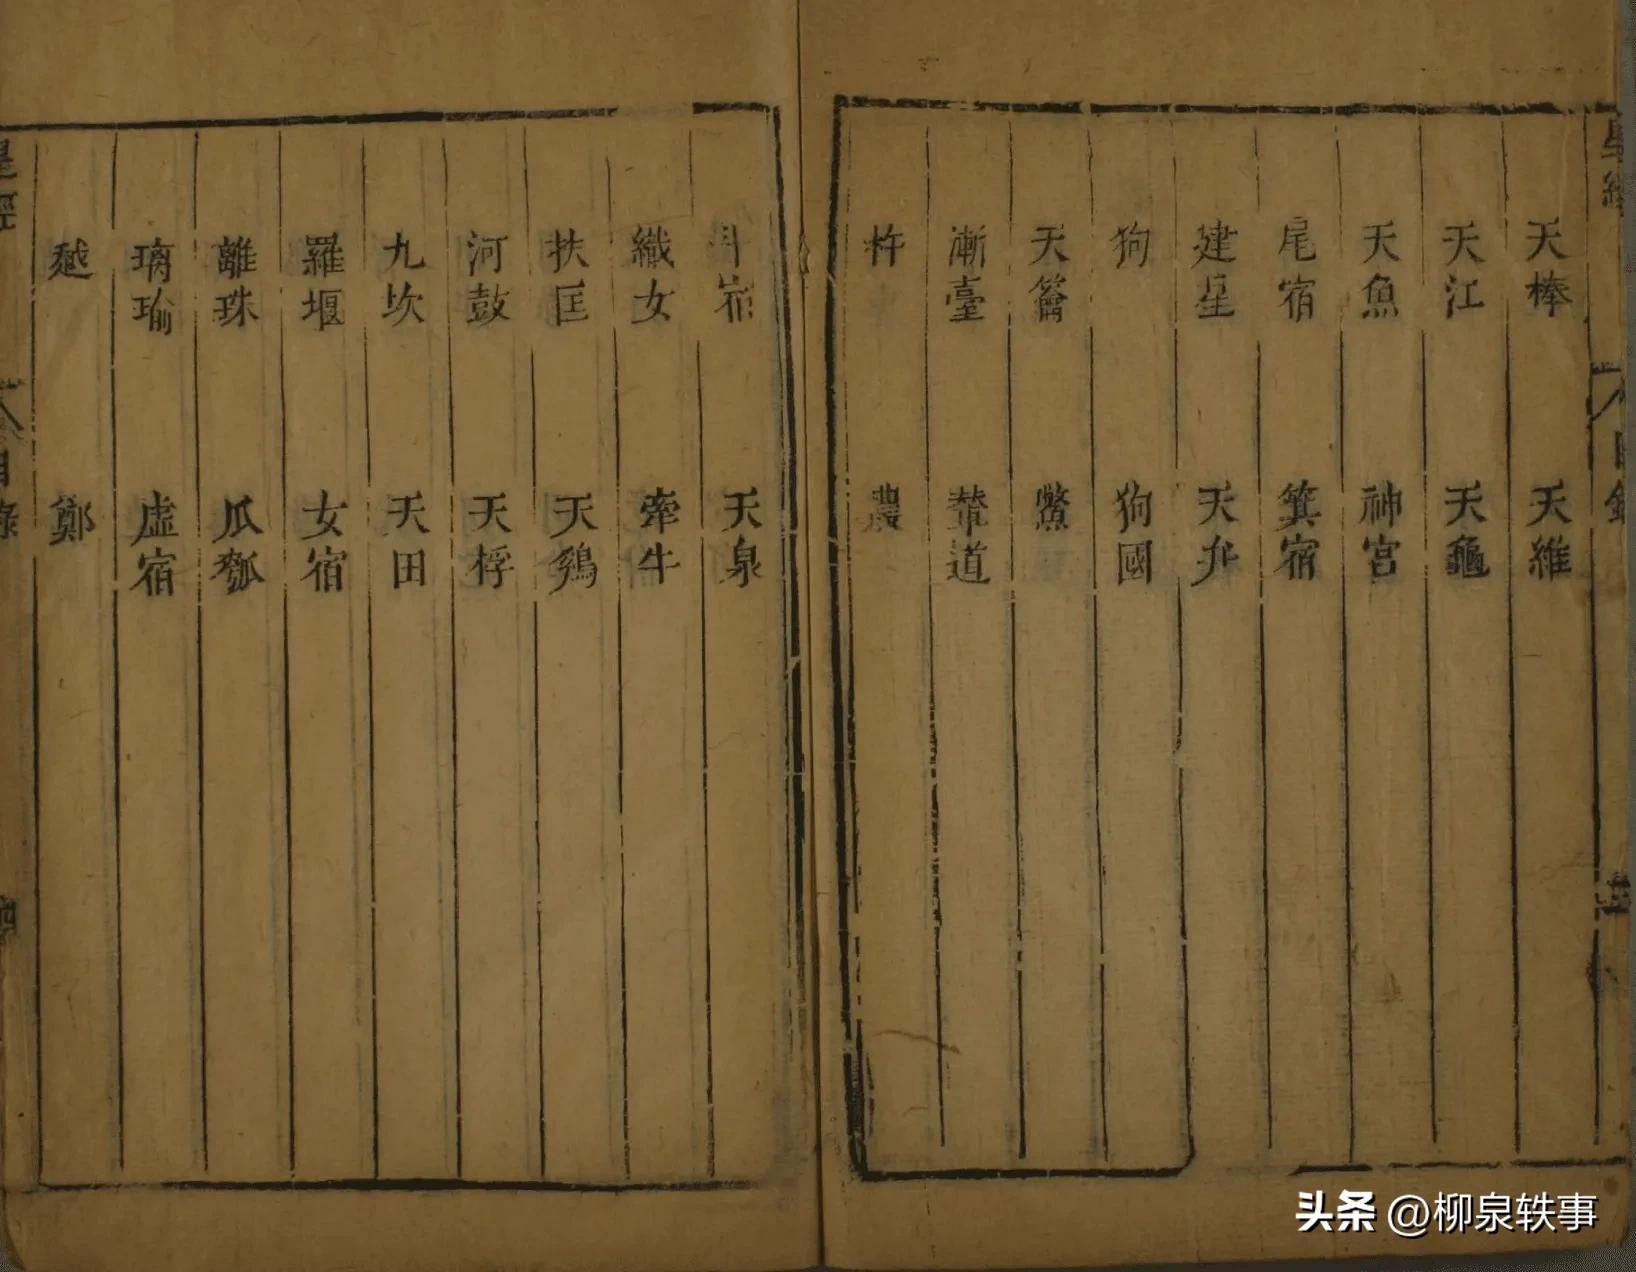 星經 目錄 三
天棒 天維
天江 天龜
天魚 神宮
尾宿 箕宿
建星 天弁
狗 狗國
天籥 鱉
漸臺 輦道
杵 農
斗宿 天泉
織女 牽牛
扶匡 天鷄
河鼓 天桴
九坎 天田
羅堰 女宿
離珠 瓜瓠
璃瑜 虛宿
越 鄭
星經 目錄 四
头条 @柳泉轶事